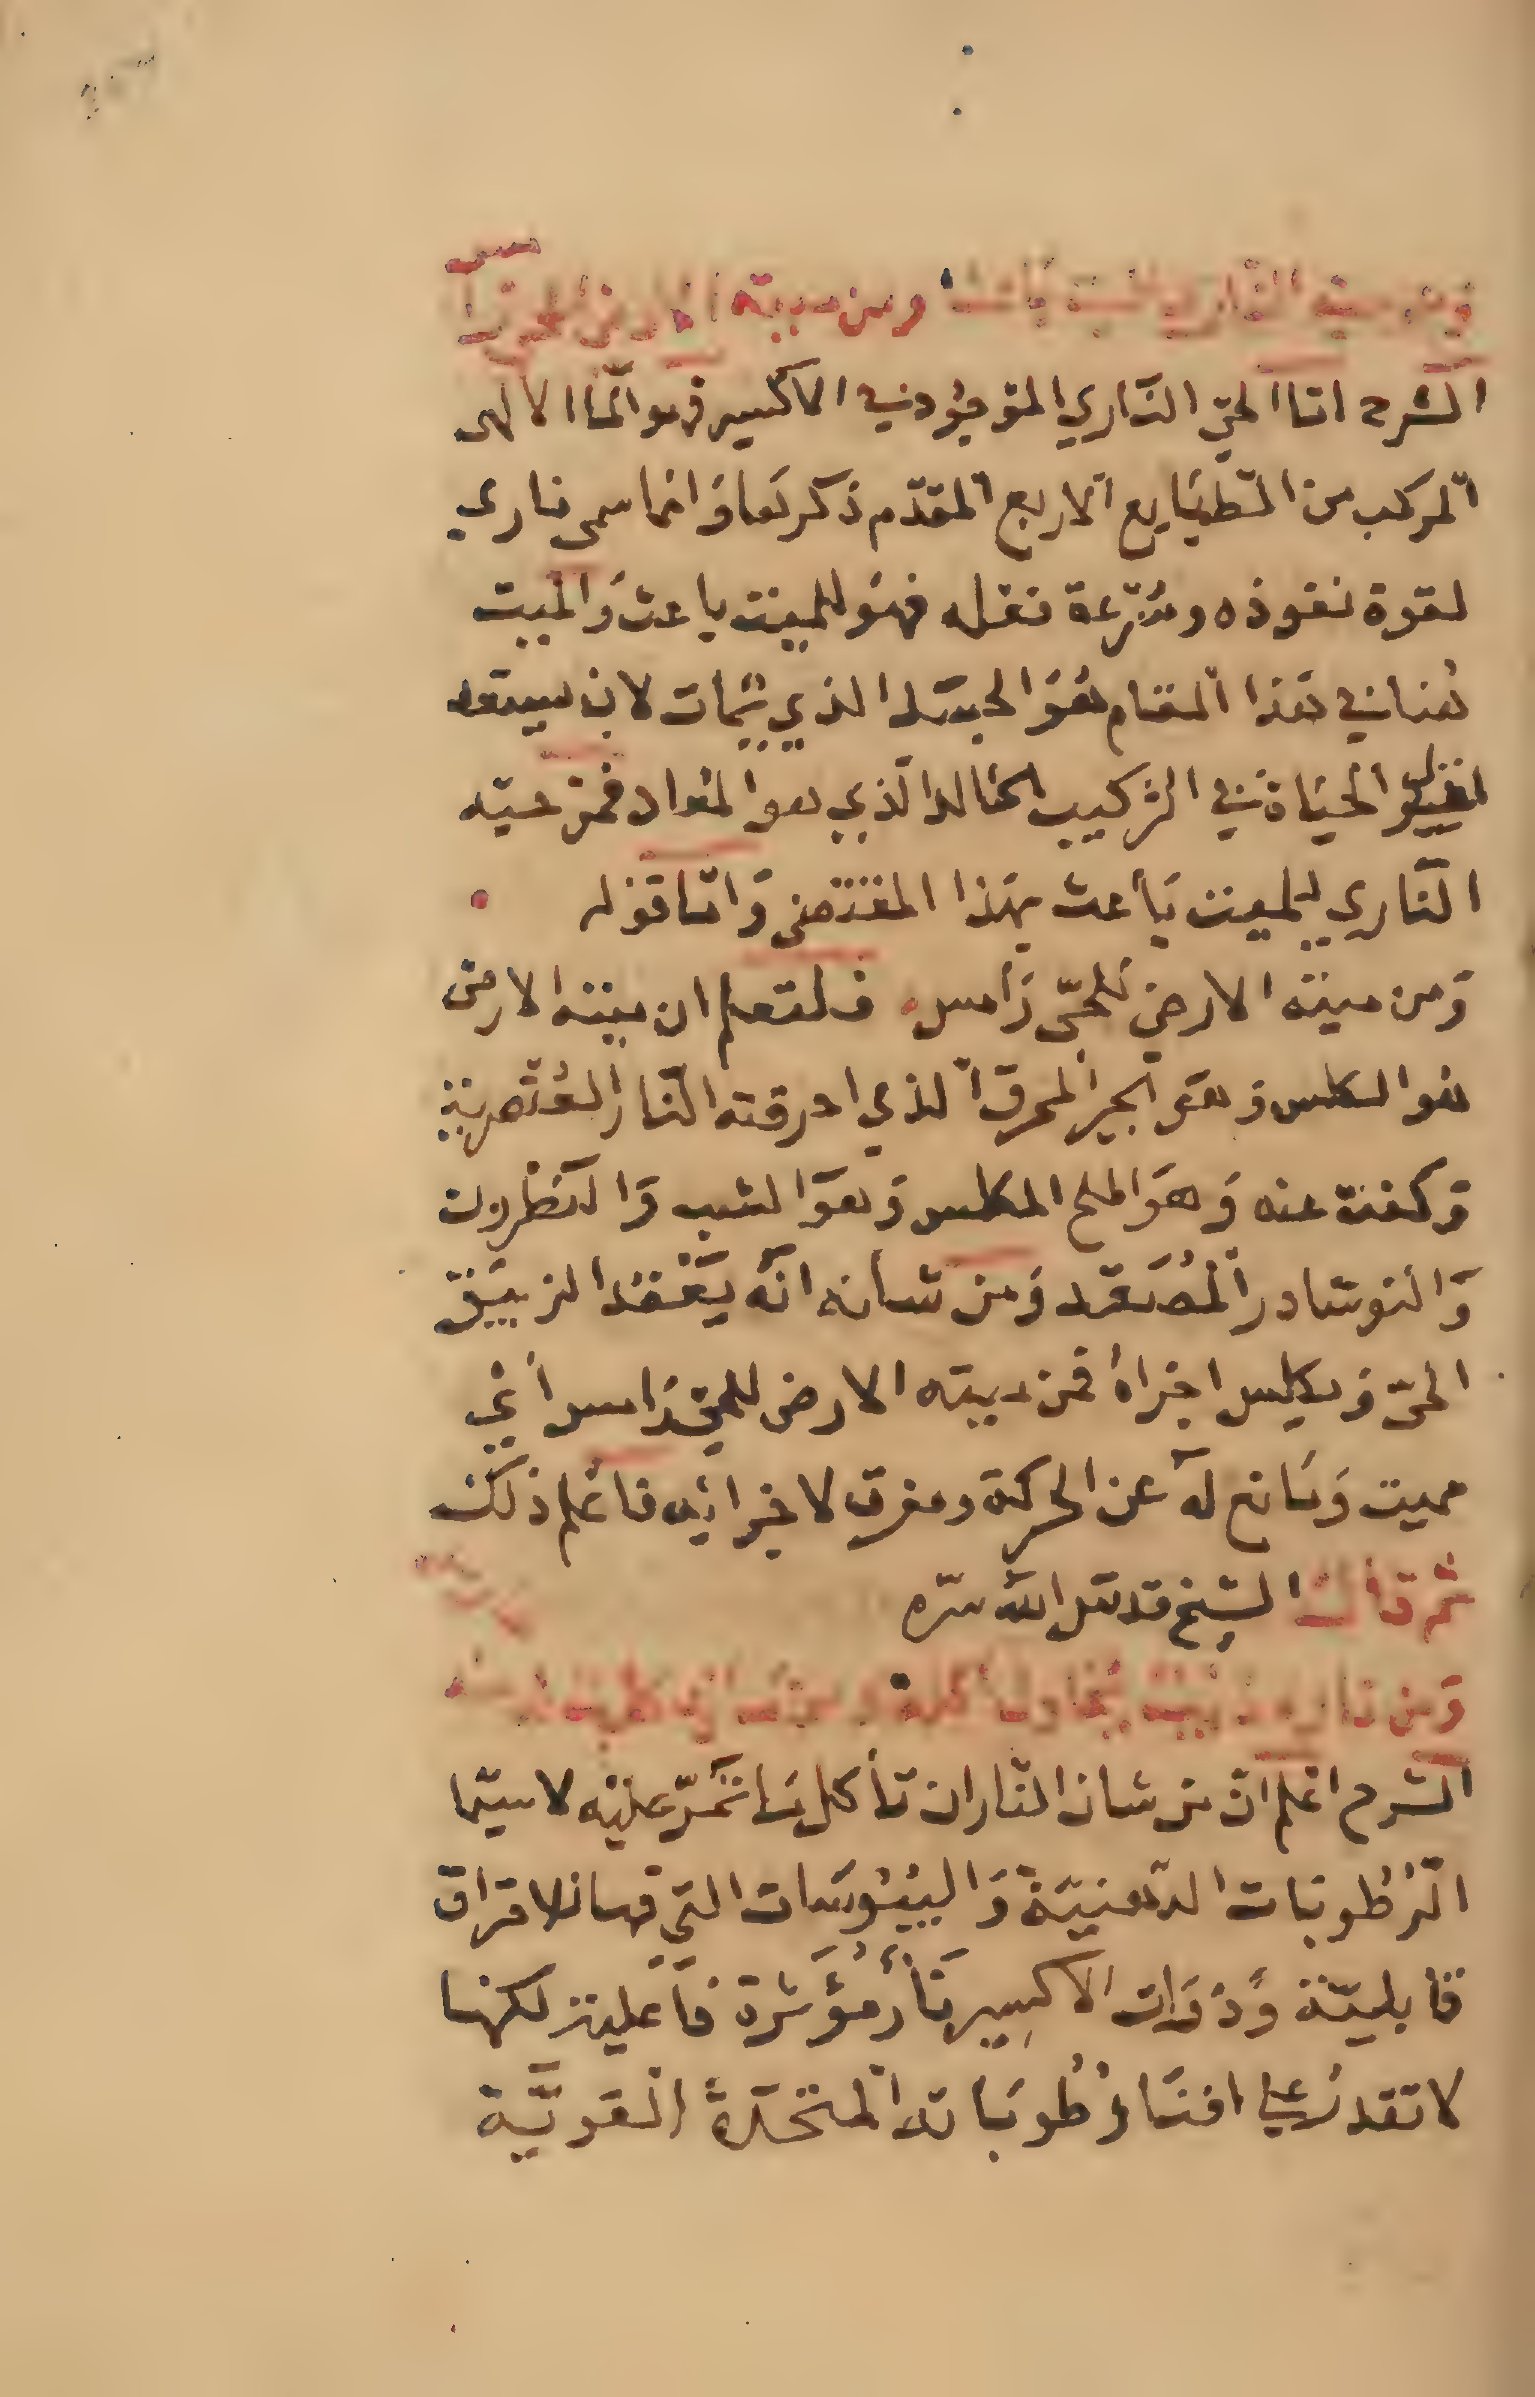 ومن حيه الناري للميت باعث ومن ميته الارضي للحي رامس
الشرح اما الحيّ النّاري الموجُود في الاكسير فهو المَّا الالهى
المركب من الطبَايع الاربع المقدّم ذكرهَا وَانما سمى ناري
لقوة نفوذه وسُرعة فعله فهوَ للميت باعث وَالميت
هُنا في هَذا المقام هُوَ الجسَد الذي يُمات لان يستعد
لقبول الحيَاة في التركيب الخالد الّذي هو المُراد فمن حيّه
النّاري للميت بَاعث بهَذا المقتضى وَامّا قوله
وَمن ميته الارضي للحىّ رَامس فلتعلم ان ميته الارضى
هو الكلس وَهوَ الجير المحرق الذي احرقته النّار العُنْصرية
وَكفت عنه وَهوَ الملح المكلس وَهوَ الشب وَالنطرون
وَالنوشادر الْمُصَعّد وَمن شأنه انّه يَعْقد الزيبَق
الحىّ وَيكلس اجزاهُ فمن ميته الارض للحي رَامس أي
مميت وَمَانع لهُ عن الحركة ومفرق لاجزائه فاعلم ذلك
ثم قال الشيخ قدسَ الله سرّه
وَمن ناره
الشرح اعلم انّ من شان النّار ان تأكل مَا تمُرّ عليْه لا سيّما
الرُطُوبات الدهنيَة وَاليبُوسَات التي فيها للاحتراق
قابليّة وَذَوَات الاكسِير نَارُ مُؤَثرة فاعلية لكنها
لا تقدرُ على افنَا رُطُوبَاته المتحدَة الْقويَّة